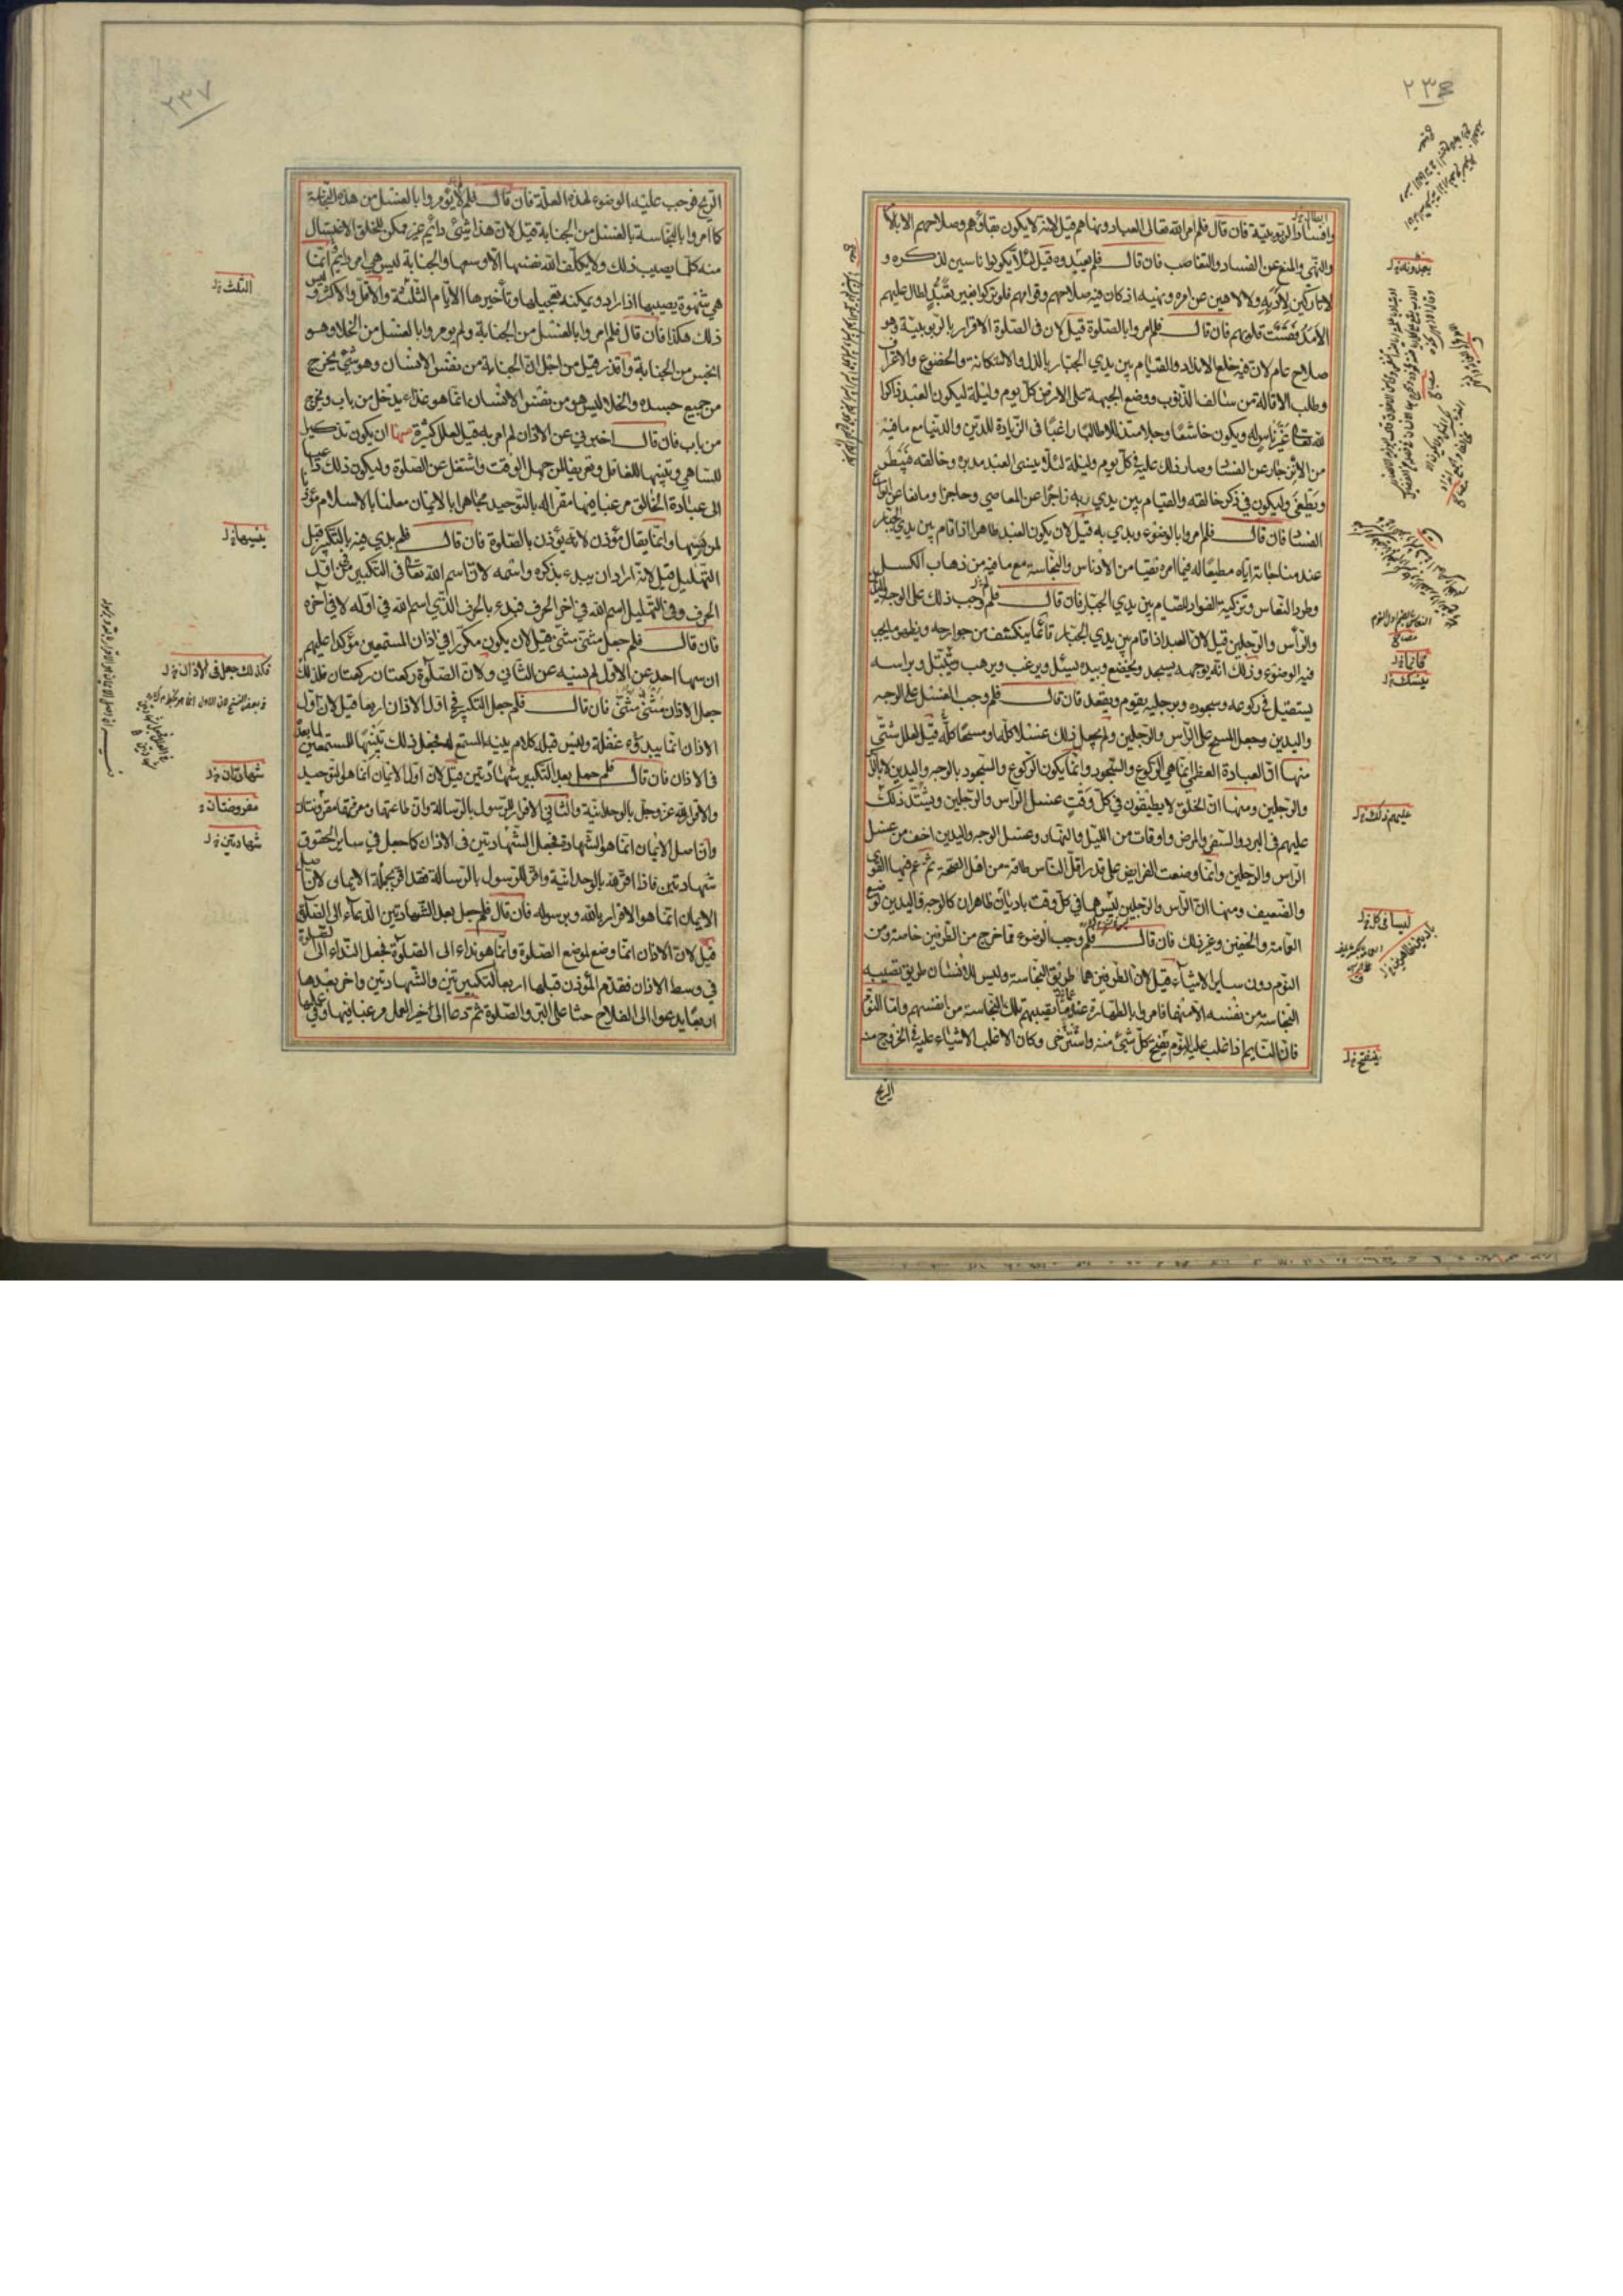 وافسادا لربوبيته فان قال فلم امر الله تعالى العباد ونهاهم قيل لانه لا يكون بقاؤهم وصلاحهم الا بالامر
والنهي والمنع عن الفساد والتغاصب فان قال فلم تعبدوه قيل لئلا يكونوا ناسين لذكره و
لا تاركين لادبه ولا لاهين عن امره ونهيه اذ كان فيه صلاحهم وقوامهم فلو تركوا بغير تعبد لطال عليهم
الامد فقست قلوبهم فان قال فلم امروا بالصلوة قيل لان في الصلوة الاقرار بالربوبية وهو
صلاح عام لان فيه خلع الانداد والقيام بين يدي الجبار بالذل والاستكانة والخضوع والاعتراف
وطلب الاقالة من سالف الذنوب ووضع الجبهة على الارض كل يوم وليلة ليكون العبد ذاكرا
لله تعالى غير ناس له ويكون خاشعا وجلا متذللا طالبا راغبا في الزيادة للدين والدنيا مع ما فيه
من الانزجار عن الفساد وصار ذلك عليه في كل يوم وليلة لئلا ينسى العبد مدبره وخالقه فيبطر
ويطغى وليكون في ذكر خالقه والقيام بين يدي ربه زاجرا عن المعاصي وحاجزا ومانعا عن انواع
الفساد فان قال فلم امروا بالوضوء وبدي به قيل لان يكون العبد طاهرا اذا قام بين يدي الجبار
عند مناجاته اياه مطيعا له فيما امره نقيا من الادناس والنجاسة مع ما فيه من ذهاب الكسل
وطرد النعاس وتزكية الفؤاد للقيام بين يدي الجبار فان قال فلم وجب ذلك على الوجه واليدين
والرأس والرجلين قيل لان العبد اذا قام بين يدي الجبار قائما ينكشف من جوارحه ويظهر ما يجب
فيه الوضوء وذلك انه بوجهه يسجد ويخضع وبيده يسئل ويرغب ويرهب ويتبتل وبراسه
يستقبل في ركوعه وسجوده وبرجليه يقوم ويقعد فان قال فلم وجب الغسل على الوجه
واليدين وجعل المسح على الرأس والرجلين ولم يجعل ذلك غسلا كله او مسحا كله قيل لعلل شتى
منها ان العبادة العظمى انما هي الركوع والسجود وانما يكون الركوع والسجود بالوجه واليدين لا بالرأس
والرجلين ومنها ان الخلق لا يطيقون في كل وقت غسل الرأس والرجلين ويشتد ذلك
عليهم في البرد والسفر والمرض واوقات من الليل والنهار وغسل الوجه واليدين اخف من غسل
الرأس والرجلين وانما وضعت الفرايض على قدر اقل الناس طاقة من اهل الصحة ثم عم فيها القوي
والضعيف ومنها ان الرأس والرجلين ليس هما في كل وقت باديان ظاهران كالوجه واليدين لموضع
العمامة والخفين وغير ذلك فان قال فلم وجب الوضوء مما خرج من الطرفين خاصة ومن
النوم دون ساير الاشياء قيل لان الطرفين هما طريق النجاسة وليس للانسان طريق تصيبه
النجاسة من نفسه الا منهما فامروا بالطهارة عندما تصيبهم تلك النجاسة من انفسهم واما النوم
فان النايم اذا غلب عليه النوم يفتح كل شيئ منه واسترخى وكان الاغلب الاشياء عليه في الخروج منه
الريح
قائما ل
يتسك ل
عليهم ذلك ل
ينفتح ل
٢٣٧
الريح فوجب عليه الوضوء لهذه العلة فان قال فلم لا يؤمروا بالغسل من هذه النجاسة
كما امروا بالنجاسة بالغسل من الجنابة قيل لان هذا شيئ دائم غير ممكن للخلق الاغتسال
منه كلما يصيب ذلك ولا يكلف الله نفسا الا وسعها والجنابة ليس هي امر دائم انما
هي شهوة يصيبها اذا اراد ويمكنه تعجيلها وتأخيرها الايام الثلثة والاقل والاكثر وليس
ذلك هكذا فان قال فلم امروا بالغسل من الجنابة ولم يومروا بالغسل من الخلا وهو
انجس من الجنابة واقذر قيل من اجل ان الجنابة من نفس الانسان وهو شيئ يخرج
من جميع جسده والخلا ليس هو من نفس الانسان انما هو غذاء يدخل من باب ويخرج
من باب فان قال اخبرني عن الاذان لم امر به قيل لعلل كثيرة منها ان يكون تذكيرا
للساهي وتنبيها للغافل وتعريفا لمن جهل الوقت واشتغل عن الصلوة وليكون ذلك داعيا
الى عبادة الخالق مرغبا فيها مقرا له بالتوحيد مجاهرا بالايمان معلنا بالاسلام مؤذنا
لمن نسيها وانما يقال مؤذن لانه يؤذن بالصلوة فان قال فلم بدي فيه بالتكبير قبل
التهليل قيل لانه اراد ان يبدء بذكره واسمه لان اسم الله تعالى في التكبير من اول
الحرف وفي التهليل اسم الله في اخر الحرف فبدء بالحرف الذي اسم الله في اوله لا في اخره
فان قال فلم جعل مثنى مثنى قيل لان يكون مكررا في اذان المستمعين مؤكدا عليهم
ان سها احد عن الاول لم يسه عن الثاني ولان الصلوة ركعتان ركعتان فلذلك
جعل الاذان مثنى مثنى فان قال فلم جعل التكبير في اول الاذان اربعا قيل لان اول
الاذان انما يبدء غفلة وليس قبله كلام ينبه المستمع له فجعل ذلك تنبيها للمستمعين لما بعده
في الاذان فان قال فلم جعل بعد التكبير شهادتين قيل لان اول الايمان انما هو التوحيد
والاقرار لله عز وجل بالوحدانية والثاني الاقرار للرسول بالرسالة وان طاعتهما ومعرفتهما مقرونتان
وان اصل الايمان انما هو الشهادة فجعل الشهادتين في الاذان كما جعل في ساير الحقوق
شهادتين فاذا اقر لله بالوحدانية واقر للرسول بالرسالة فقد اقر بجملة الايمان لان اصل
الايمان انما هو الاقرار بالله وبرسوله فان قال فلم جعل بعد الشهادتين الدعاء الى الصلوة
قيل لان الاذان انما وضع لموضع الصلوة وانما هو نداء الى الصلوة فجعل النداء الى الصلوة
في وسط الاذان فقدم المؤذن قبلها اربعا التكبيرتين والشهادتين واخر بعدها
اربعا يدعوا الى الفلاح حثا على البر والصلوة ثم دعا الى خير العمل مرغبا فيها وفي عملها
الثلث ل
ينسيها ل
فكذلك جعل في الاذان ل
شهادتان ل
مفروضتان
شهادتين ل